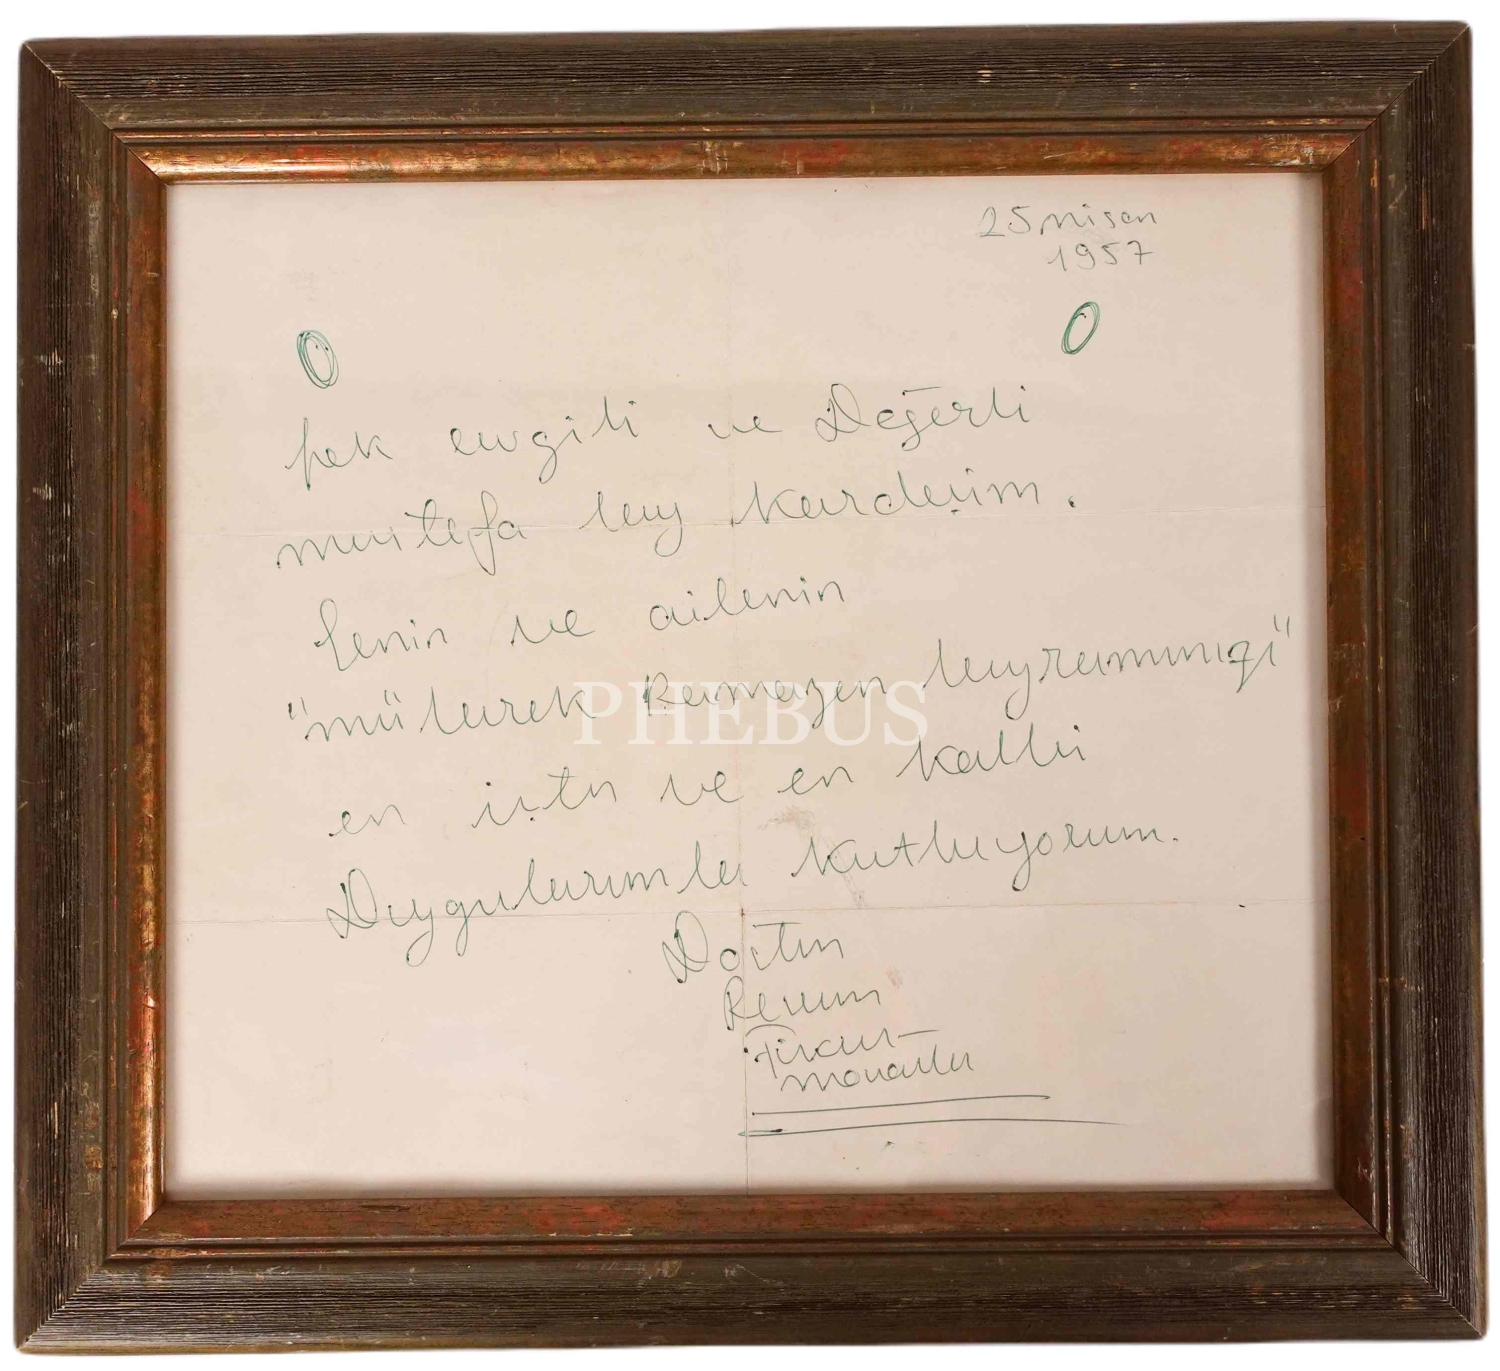 25 Nisan
1957
Pek sevgili ve Değerli
mustafa bey kardeşim.
Senin ve ailenin
"mübarek Ramazan bayramınızı"
PHEBUS
en içtn ve en kalbi
Duygularımla kutluyorum.
Dostun